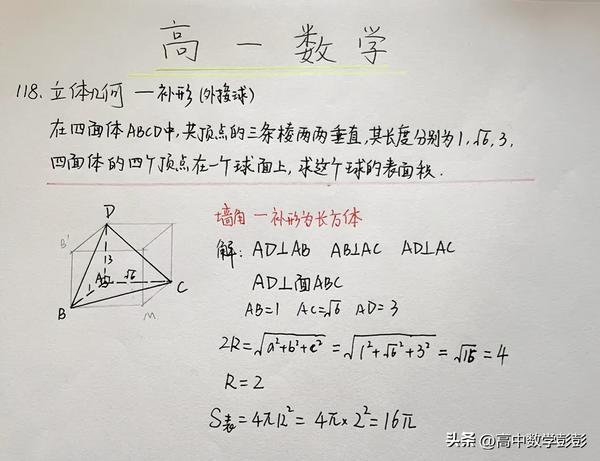 高一数学
118. 立体几何 — 补形 (外接球)
在四面体ABCD中,共顶点的三条棱两两垂直,其长度分别为1,√6,3,
四面体的四个顶点在一个球面上,求这个球的表面积.
墙角 — 补形为长方体
解: AD⊥AB AB⊥AC AD⊥AC
AD⊥面ABC
AB=1 AC=√6 AD=3
2R=√(a²+b²+c²)=√(1²+√6²+3²)=√16=4
R=2
S表=4πR²=4π×2²=16π
D
B'
3
A
√6
1
C
B
M
头条 @高中数学彭彭